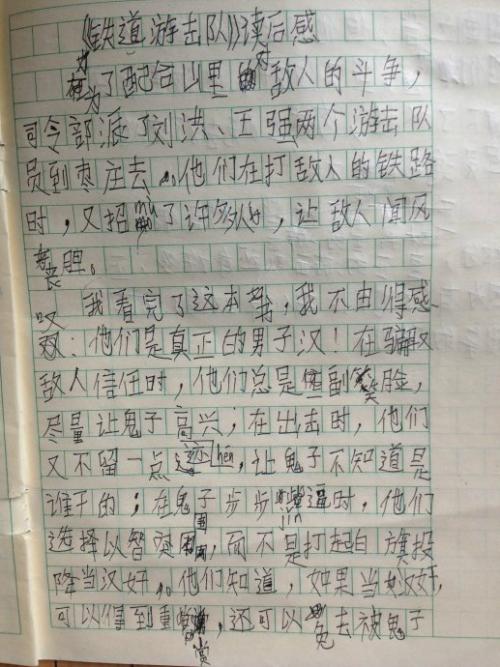 《铁道游击队》读后感
为了配合山里对敌人的斗争，
司令部派了刘洪、王强两个游击队
员到枣庄去。他们在打敌人的铁路
时，又招mù了许多人，让敌人闻风
丧胆。
我看完了这本书，我不由得感
叹：他们是真正的男子汉！在骗取
敌人信任时，他们总是副笑脸，
尽量让鬼子高兴；在出击时，他们
又不留一点迹hén，让鬼子不知道是
谁干的；在鬼子步步jìn逼时，他们
选择以智突围，而不是打起白旗投
降当汉奸。他们知道，如果当汉奸，
可以得到重赏，还可以免去被鬼子